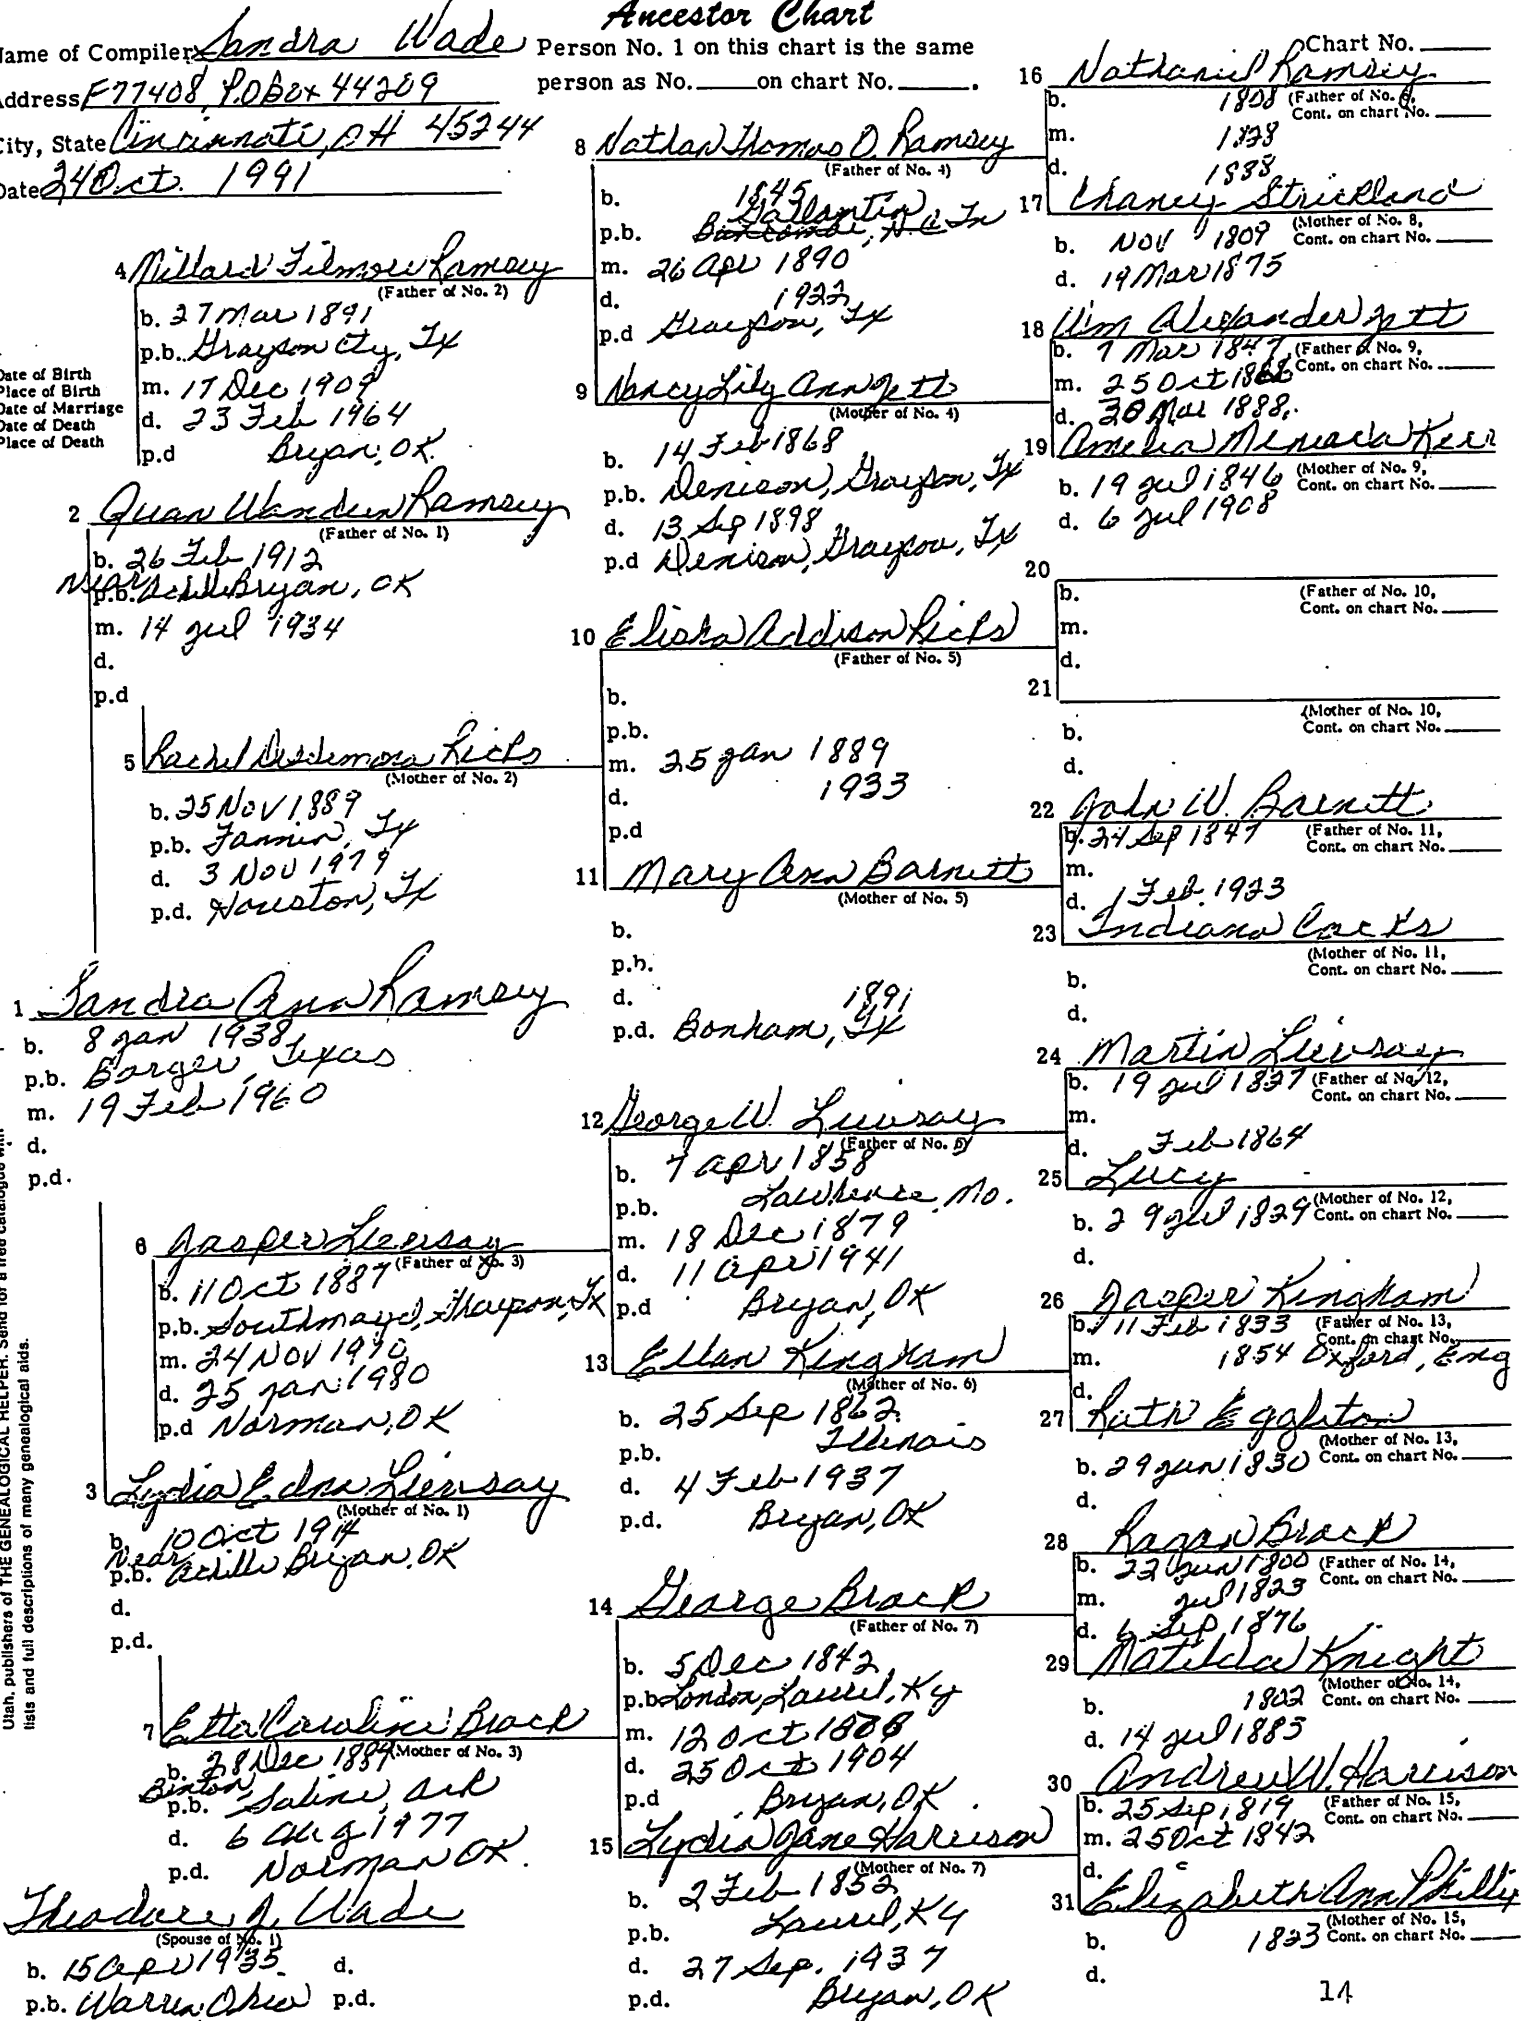 Ancestor Chart
Name of Compiler Sandra Wade
Address F77408, P.O Box 44209
City, State Cincinnati, OH 45244
Date 24 Oct. 1991
Person No. 1 on this chart is the same
person as No. ____ on chart No. ____.
Chart No. ____
Date of Birth
Place of Birth
Date of Marriage
Date of Death
Place of Death
1 Sandra Ann Ramsey
b. 8 Jan 1938
p.b. Borger, Texas
m. 19 Feb 1960
d.
p.d.
2 Quan Ramsey
(Father of No. 1)
b. 26 Feb 1912
Near
p.b. Achille Bryan, OK
m. 14 Jul 1934
d.
p.d
3 Lydia Edna Livesay
(Mother of No. 1)
b. 10 Oct 1914
Near
p.b. Achille Bryan, OK
d.
p.d.
4 Millard Filmore Ramsey
(Father of No. 2)
b. 27 Mar 1891
p.b. Grayson Cty, Tx
m. 17 Dec 1909
d. 23 Feb 1964
p.d Bryan, OK
5 Rachel Desdemona Ricks
(Mother of No. 2)
b. 25 Nov 1889
p.b. Fannin, Tx
d. 3 Nov 1979
p.d. Houston, Tx
6 Jasper Livesay
(Father of No. 3)
b. 11 Oct 1887
p.b. Southmayd, Grayson, Tx
m. 24 Nov 1910
d. 25 Jan 1980
p.d Norman, OK
7 Etta Caroline Brock
(Mother of No. 3)
b. 28 Dec 1889
Binton,
p.b. Saline, Ark
d. 6 Aug 1977
p.d. Norman OK.
Theodore J. Wade
(Spouse of No. 1)
b. 15 Apr 1935 d.
p.b. Warren, Ohio p.d.
8 Nathan Thomas O. Ramsey
(Father of No. 4)
b. 1845
Gallantin
p.b. Buncombe, N.C. Tn
m. 26 Apr 1890
d. 1922
p.d Grayson, Tx
9 Nancy Lily Ann Jett
(Mother of No. 4)
b. 14 Feb 1868
p.b. Denison, Grayson, Tx
d. 13 Sep 1898
p.d Denison, Grayson, Tx
10 Elisha Addison Ricks
(Father of No. 5)
b.
p.b.
m. 25 Jan 1889
d. 1933
p.d
11 Mary Ann Barnett
(Mother of No. 5)
b.
p.b.
d. 1891
p.d. Bonham, Tx
12 George W. Livesay
(Father of No. 6)
b. 7 Apr 1858
p.b. Lawrence, Mo.
m. 18 Dec 1879
d. 11 Apr 1941
p.d Bryan, OK
13 Ellan Kingham
(Mother of No. 6)
b. 25 Sep 1862
p.b. Illinois
d. 4 Feb 1937
p.d. Bryan, OK
14 George Brock
(Father of No. 7)
b. 5 Dec 1842
p.b. London, Laurel, Ky
m. 12 Oct
d. 25 Oct 1904
p.d Bryan, OK
15 Lydia Jane Harrison
(Mother of No. 7)
b. 2 Feb 1852
p.b. Laurel, Ky
d. 27 Sep. 1937
p.d. Bryan, OK
16 Nathaniel Ramsey
b. 1808 (Father of No. 8,
Cont. on chart No. ____
m. 1828
d. 1888
17 Chaney Strickland
(Mother of No. 8,
b. Nov 1809 Cont. on chart No. ____
d. 19 Mar 1875
18 Wm Alexander Jett
b. 7 Mar 1847 (Father of No. 9,
Cont. on chart No. ____
m. 25 Oct
d. Mar 1888
19 Amelia Kerr
(Mother of No. 9,
b. 19 Jul 1846 Cont. on chart No. ____
d. 6 Jul 1908
20
b. (Father of No. 10,
Cont. on chart No. ____
m.
d.
21
(Mother of No. 10,
b. Cont. on chart No. ____
d.
22 John W. Barnett
b. 24 Sep 1847 (Father of No. 11,
Cont. on chart No. ____
m.
d. 1 Feb. 1923
23 Indiana Cocks
(Mother of No. 11,
b. Cont. on chart No. ____
d.
24 Martin Livesay
b. 19 Jul 1827 (Father of No. 12,
Cont. on chart No. ____
m.
d. Feb 1864
25 Lucy
(Mother of No. 12,
b. 29 Jul 1829 Cont. on chart No. ____
d.
26 Jasper Kingham
b. 11 Feb 1833 (Father of No. 13,
Cont. on chart No. ____
m. 1854 Oxford, Eng
d.
27 Ruth Eggleton
(Mother of No. 13,
b. 29 Jun 1830 Cont. on chart No. ____
d.
28 Ragan Brock
b. 22 Jun 1800 (Father of No. 14,
Cont. on chart No. ____
m. Jul 1823
d. 6 Sep 1876
29 Matilda Knight
(Mother of No. 14,
b. 1802 Cont. on chart No. ____
d. 14 Jul 1885
30 Andrew W. Harrison
b. 25 Sep 1819 (Father of No. 15,
Cont. on chart No. ____
m. 25 Oct 1842
d.
31 Elizabeth Ann
(Mother of No. 15,
b. 1823 Cont. on chart No. ____
d.
Utah, publishers of THE GENEALOGICAL HELPER. Send for a free catalogue with
lists and full descriptions of many genealogical aids.
14